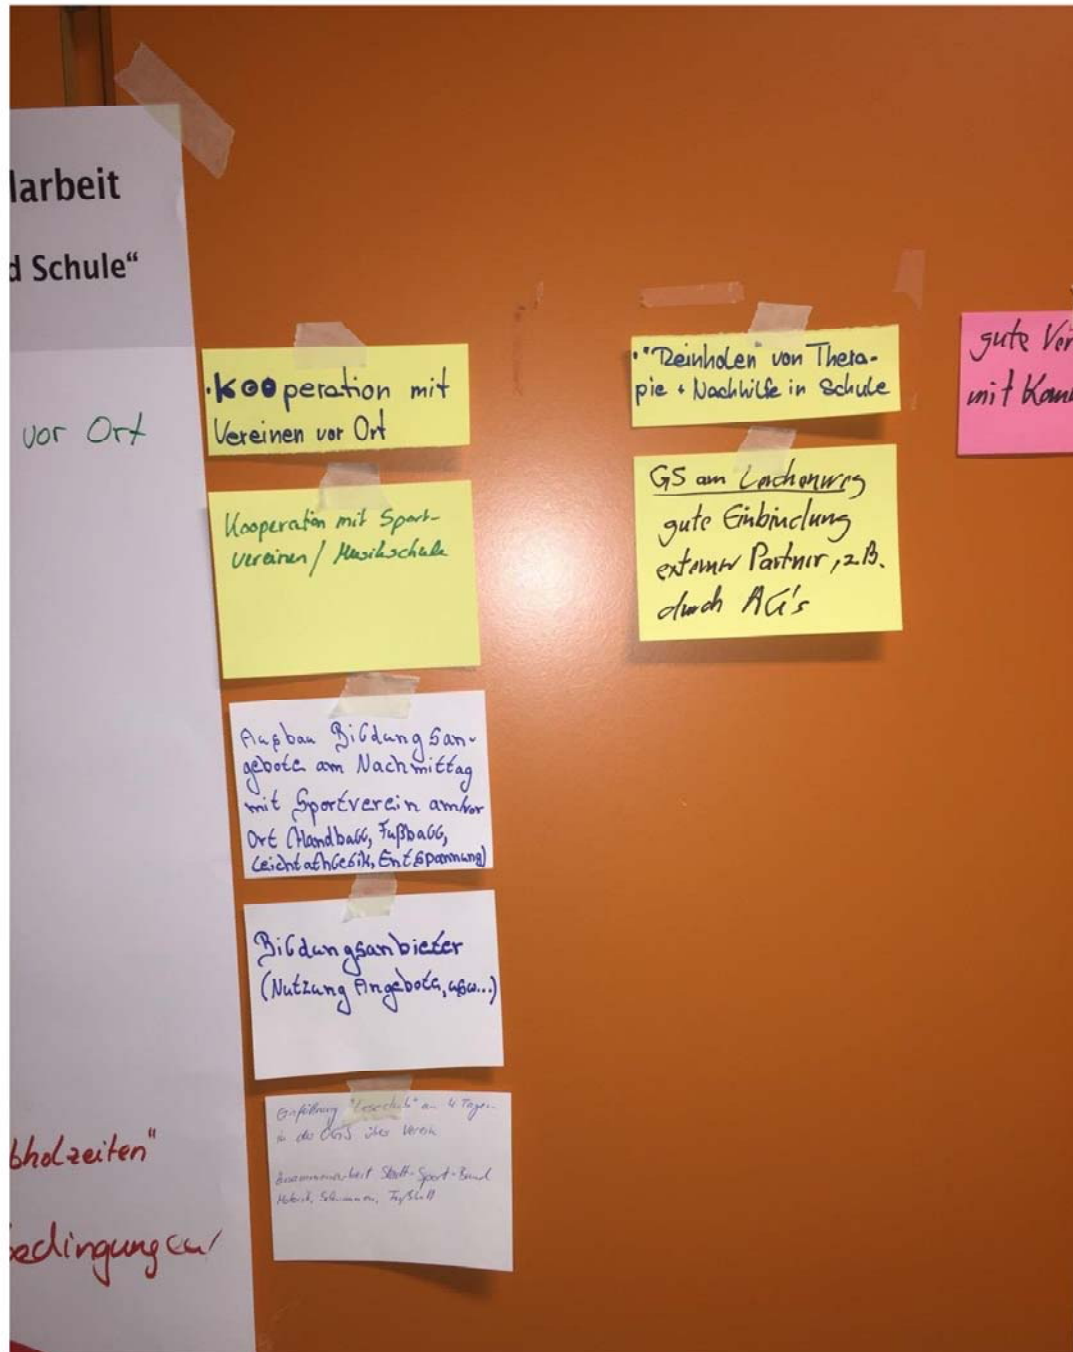 larbeit
d Schule“
vor Ort
bholzeiten"
bedingungen/
·Kooperation mit
Vereinen vor Ort
Kooperation mit Sport-
vereinen / Musikschule
Ausbau Bildungsan-
gebote am Nachmittag
mit Sportverein am/vor
Ort (Handball, Fußball,
Leichtathletik, Entspannung)
Bildungsanbieter
(Nutzung Angebote, usw...)
Einführung an 4 Tagen
in der OGS über Verein
Zusammenarbeit Stadt-Sport-Bund
Motorik, Schwimmen, Fußball
·"Reinholen" von Thera-
pie + Nachhilfe in Schule
GS am Lerchenweg
gute Einbindung
externer Partner, z.B.
durch AG's
gute Ver
mit Kom